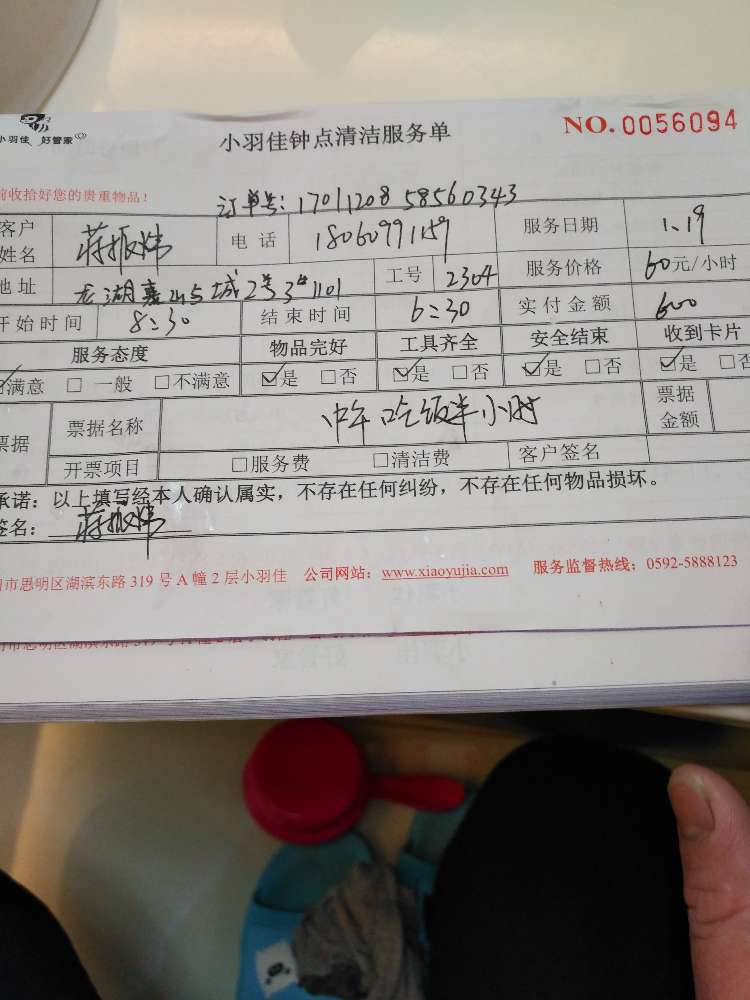 小羽佳 好管家
小羽佳钟点清洁服务单
NO. 0056094
前收拾好您的贵重物品！
订单号：17011208 58560343
客户姓名 蒋振炜 电话 18060991159 服务日期 1、19
地址 龙湖嘉 城2号3#1101 工号 2304 服务价格 60元/小时
开始时间 8:30 结束时间 6:30 实付金额 600
服务态度 物品完好 工具齐全 安全结束 收到卡片
满意 一般 不满意 是 否 是 否 是 否 是 否
票据 票据名称 中午吃饭半小时 票据金额
开票项目 服务费 清洁费 客户签名
承诺：以上填写经本人确认属实，不存在任何纠纷，不存在任何物品损坏。
签名：蒋振炜
市思明区湖滨东路 319 号 A 幢 2 层小羽佳 公司网站：www.xiaoyujia.com 服务监督热线：0592-5888123